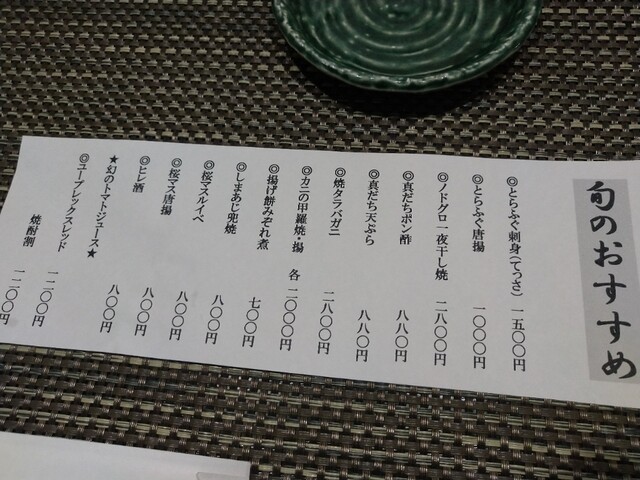 旬のおすすめ
◎とらふぐ刺身(てっさ) 一五〇〇円
◎とらふぐ唐揚 一〇〇〇円
◎ノドグロ一夜干し焼 二八〇〇円
◎真だちポン酢 八八〇円
◎真だち天ぷら 八八〇円
◎焼タラバガニ 二八〇〇円
◎カニの甲羅焼・揚 各 二〇〇〇円
◎揚げ餅みぞれ煮 七〇〇円
◎しまあじ兜焼 八〇〇円
◎桜マスルイベ 八〇〇円
◎桜マス唐揚 八〇〇円
◎ヒレ酒 八〇〇円
★幻のトマトジュース★
◎ユープレックスレッド 一二〇〇円
焼酎割 一二〇〇円